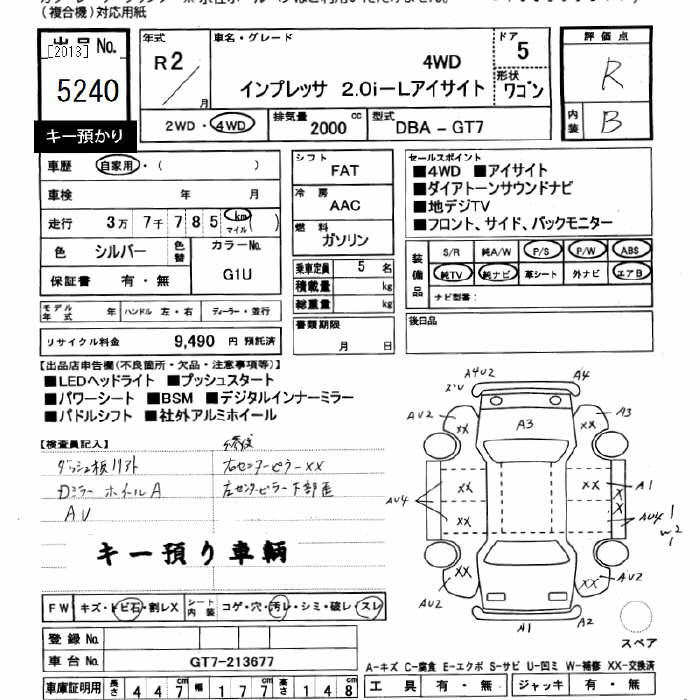 (複合機)対応用紙
出品No.
[2013]
5240
キー預かり
年式
R2
月
車名・グレード
4WD
インプレッサ 2.0i-Lアイサイト
ドア
5
形状
ワゴン
2WD・4WD
排気量
2000 cc
型式
DBA - GT7
評価点
R
内装
B
車歴 自家用・( )
車検 年 月
走行 3万 7千 7 8 5 km マイル ( )
色 シルバー 色替
カラーNo.
G1U
保証書 有・無
シフト
FAT
冷房
AAC
燃料
ガソリン
乗車定員 5 名
積載量 kg
総重量 kg
書類期限
月 日
セールスポイント
■4WD ■アイサイト
■ダイアトーンサウンドナビ
■地デジTV
■フロント、サイド、バックモニター
装備品
S/R 純A/W P/S P/W ABS
純TV 純ナビ 革シート 外ナビ エアB
ナビ型番:
後日品
モデル年式 年 ハンドル 左・右 ディーラー・並行
リサイクル料金 9,490 円 預託済
【出品店申告欄(不良箇所・欠品・注意事項等)】
■LEDヘッドライト ■プッシュスタート
■パワーシート ■BSM ■デジタルインナーミラー
■パドルシフト ■社外アルミホイール
【検査員記入】
修復
ダッシュ板リフト
右センターピラーXX
Dミラー ホイールA
左センターピラー下部歪
AU
キー預り車輌
FW キズ・トビ石・割レX
シート内装 コゲ・穴・汚レ・シミ・破レ・スレ
登録No.
車台No. GT7-213677
車庫証明用 長さ 4 4 7 幅 1 7 7 高さ 1 4 8
A4U2
A4
AU2
A3
A3
XX
XX
XX
XX
A1
X
X
AU4
XX
AU4
W2
XX
XX
AU2
AU2
A1
A2
スペア
A-キズ C-腐食 E-エクボ S-サビ U-凹ミ W-補修 XX-交換済
工具 有・無 ジャッキ 有・無